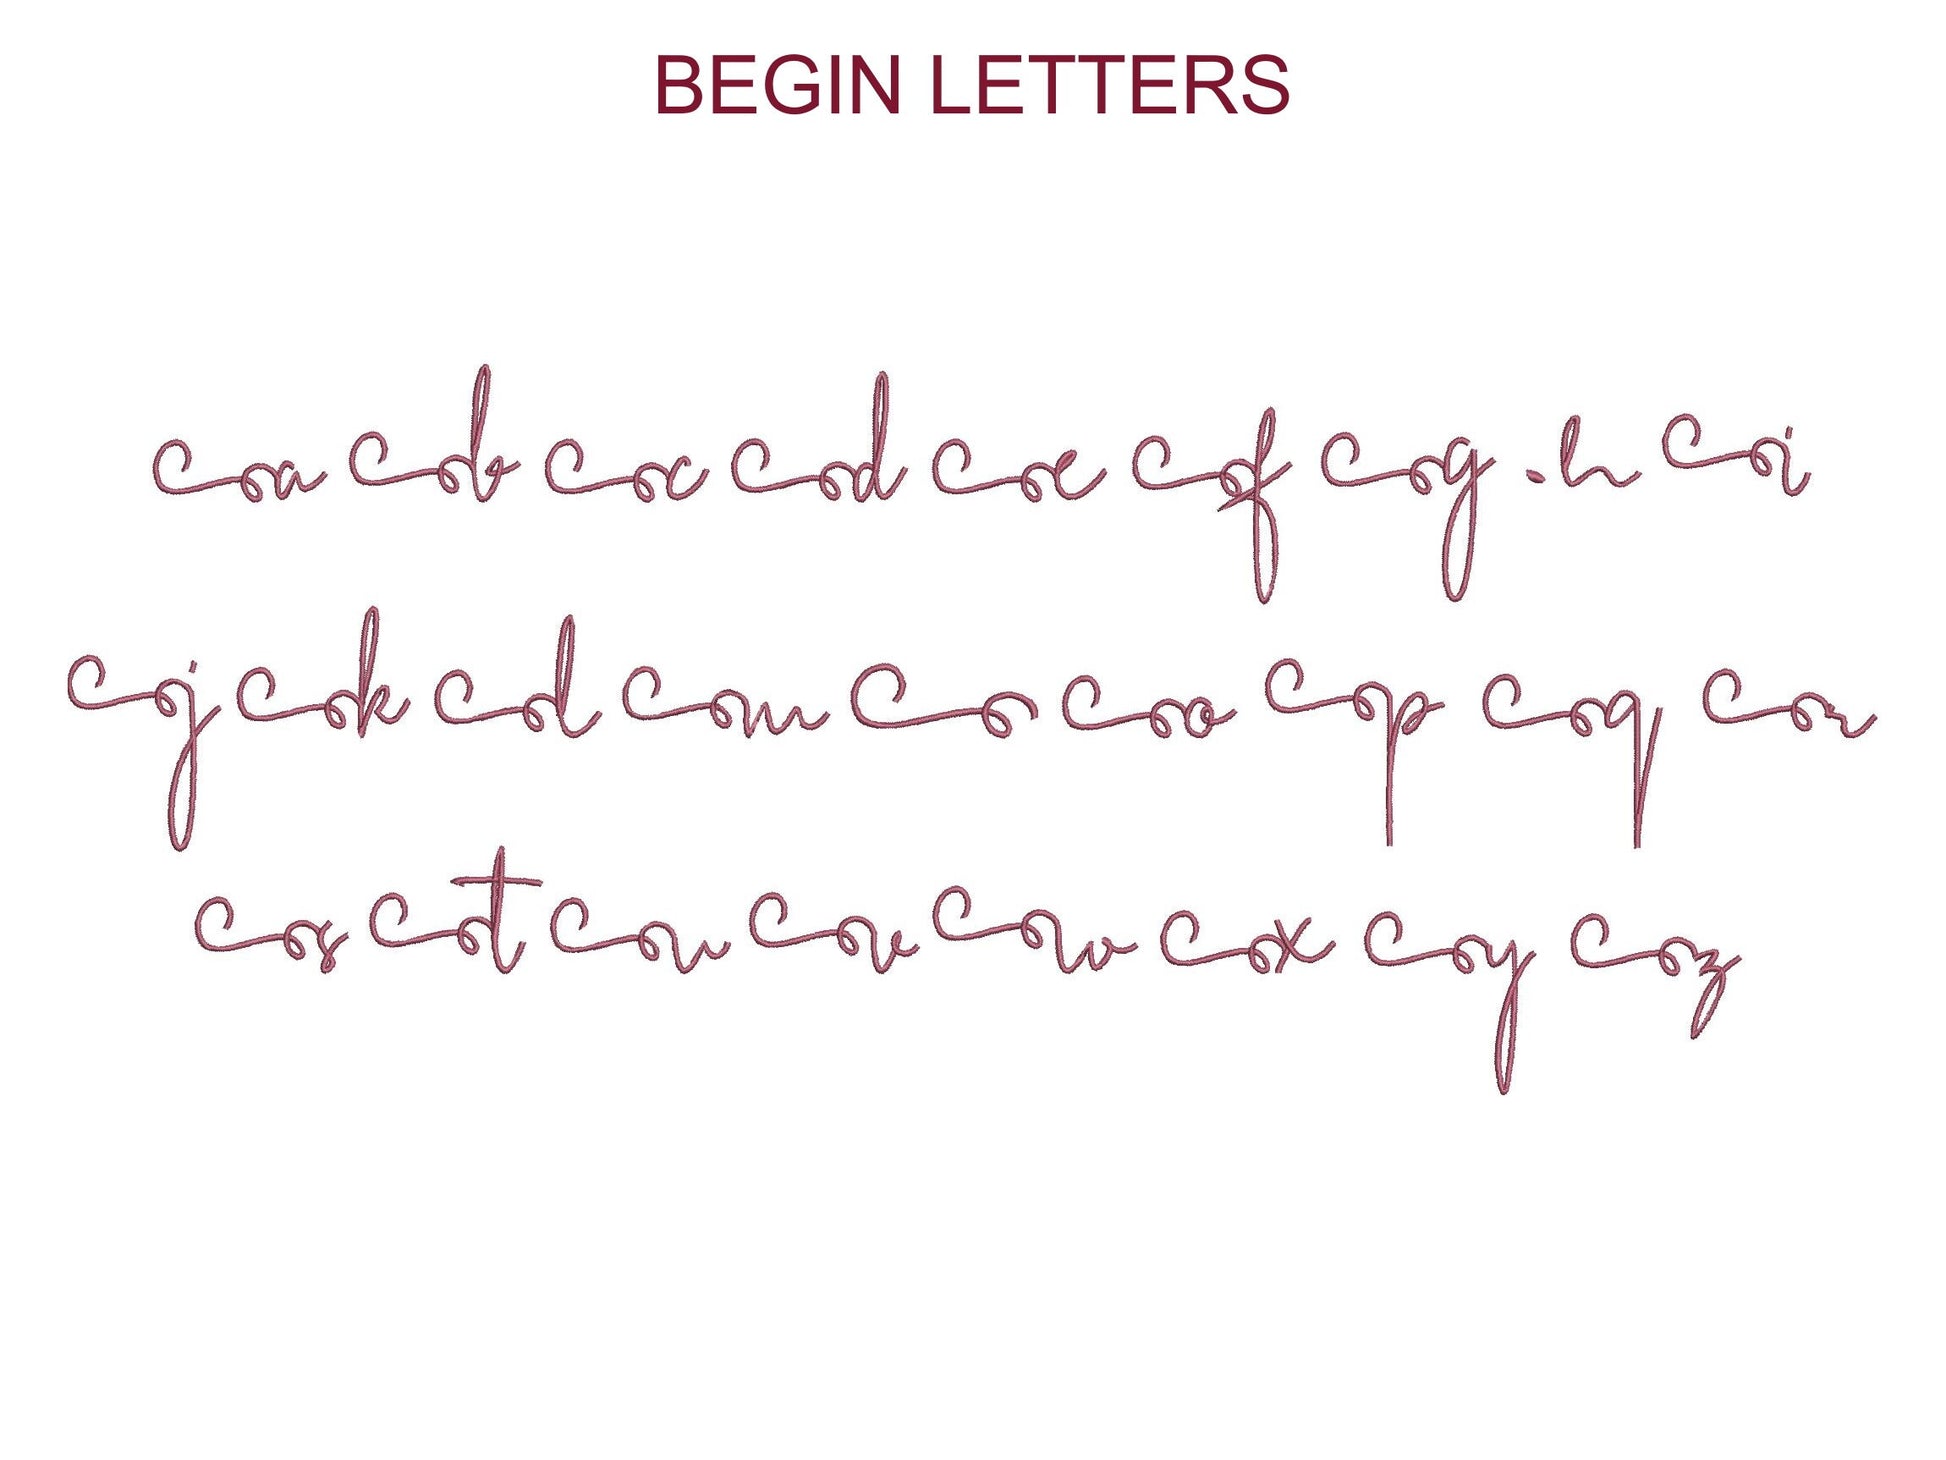 BEGIN LETTERS
a b c d e f g .h i
j k l m o p q r
s t u v w x y z